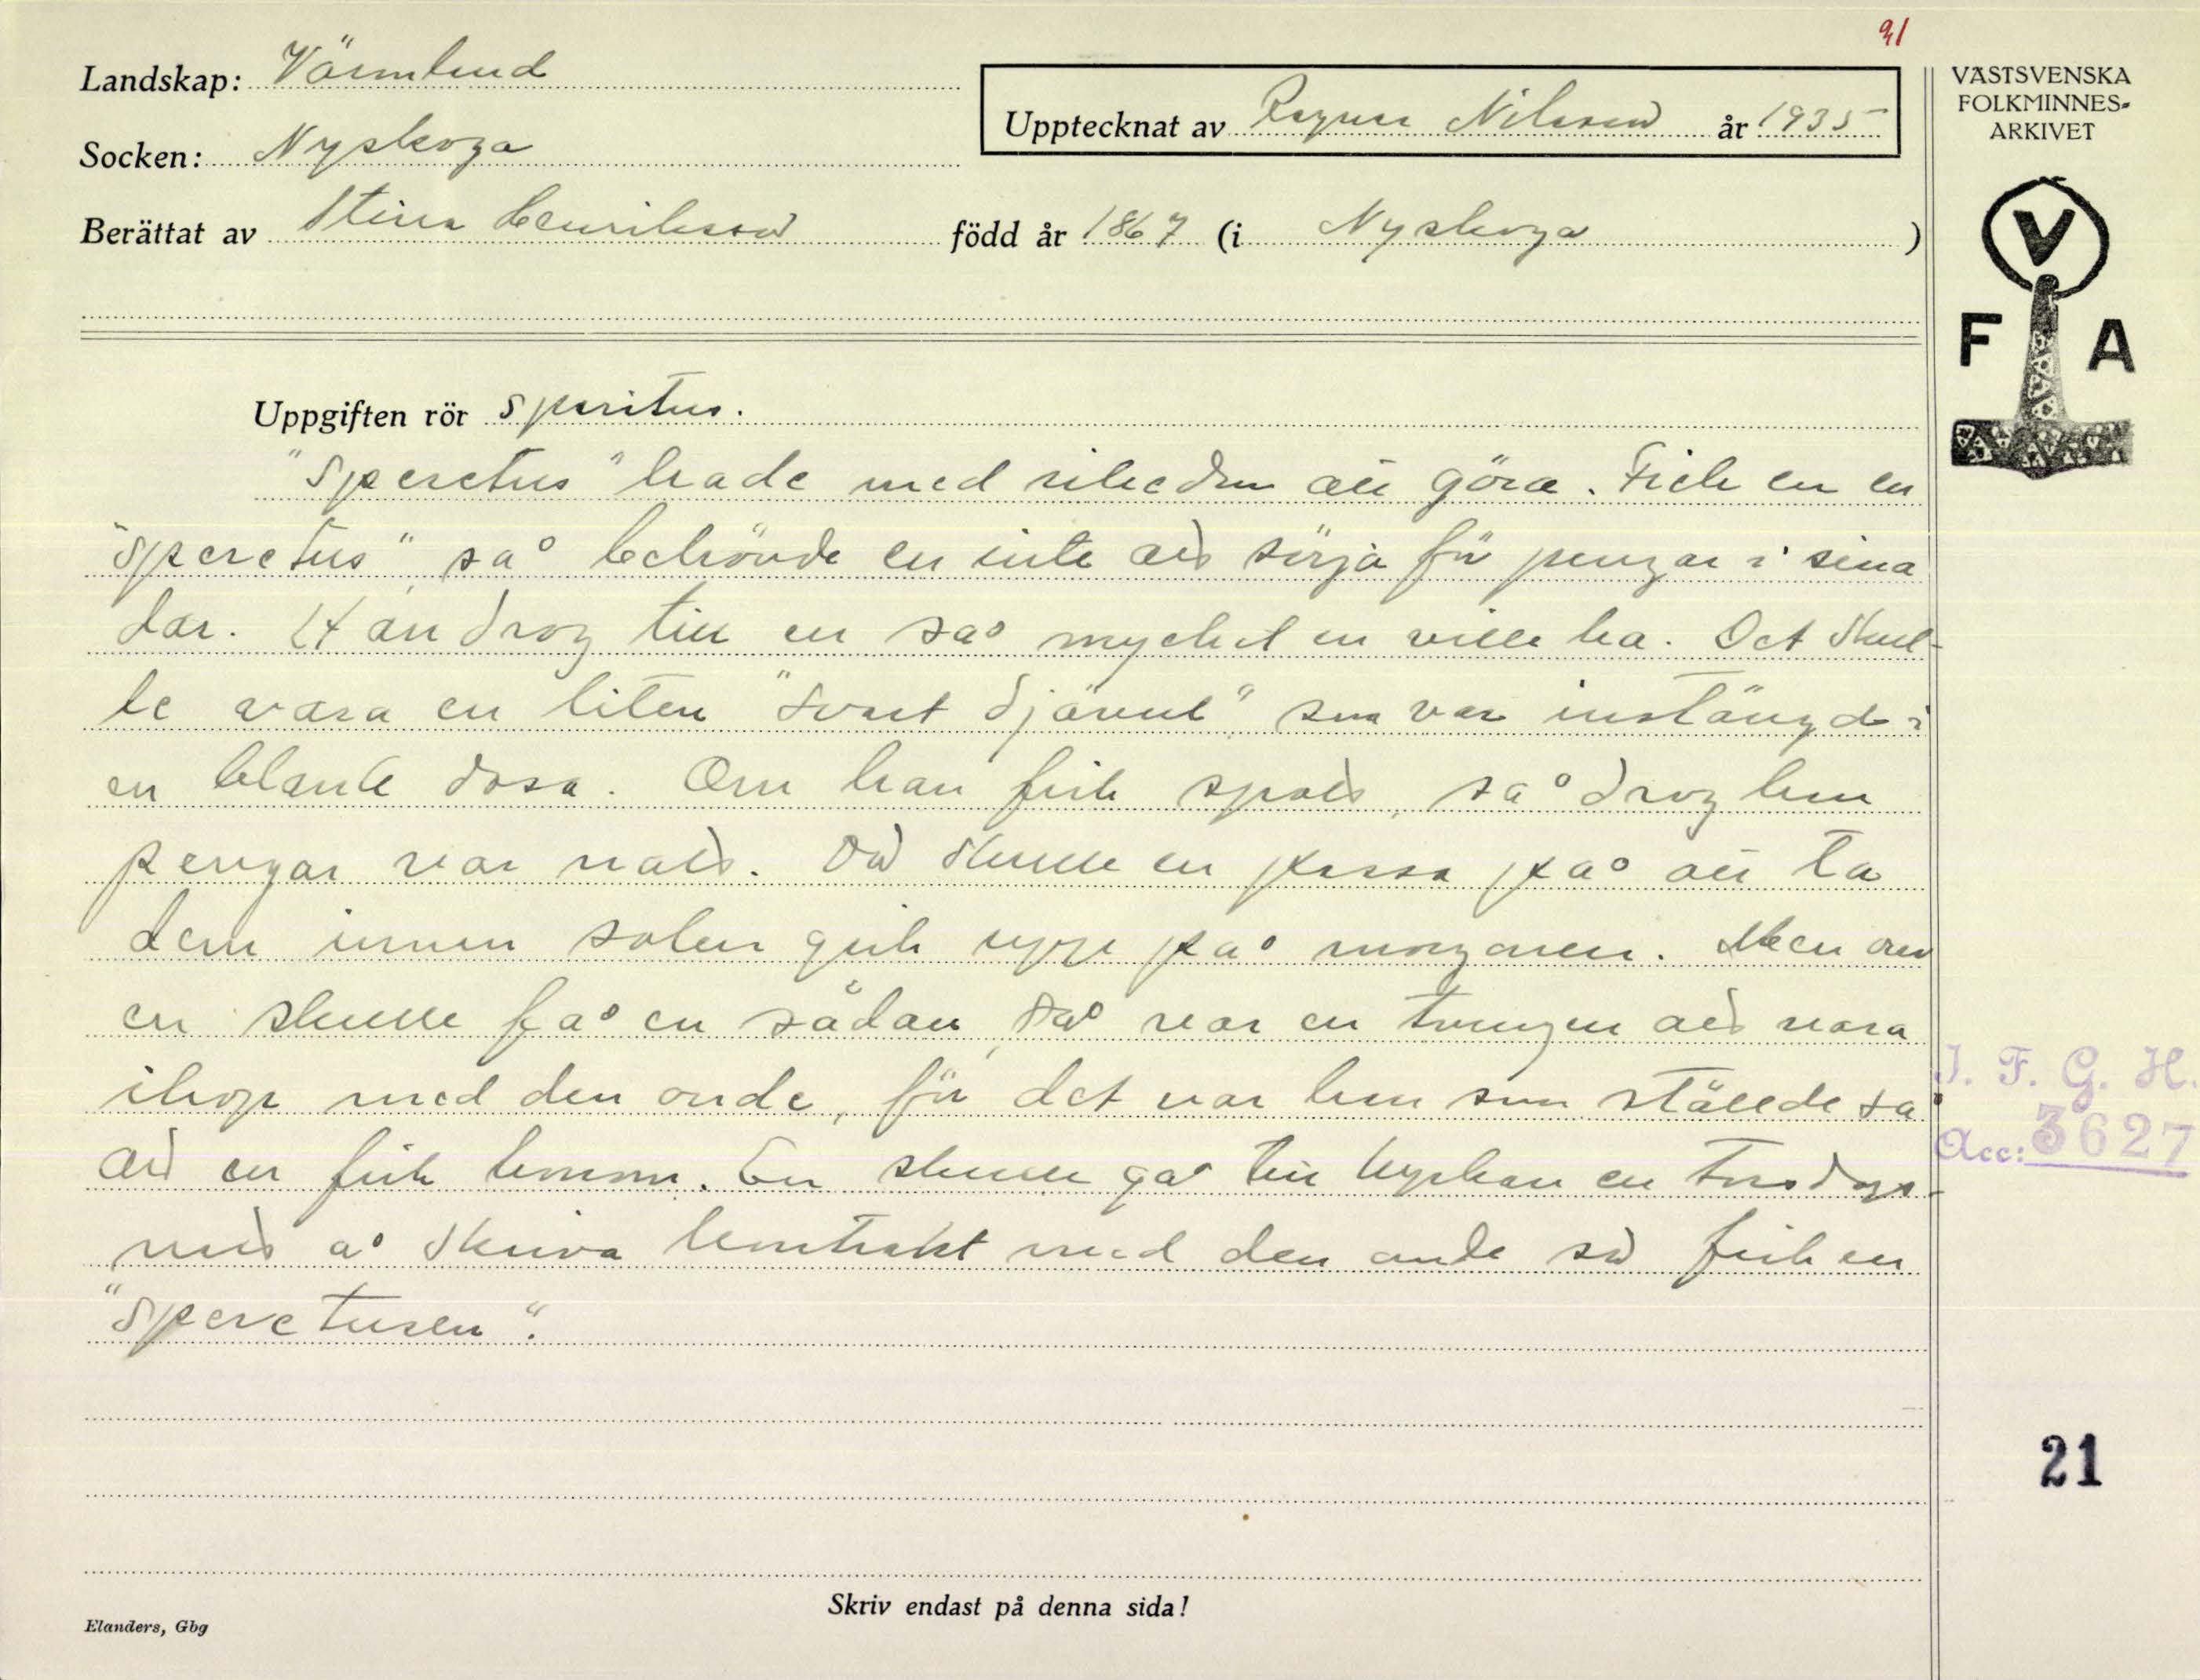 91
Landskap: Värmland
Socken: Nyskoga
Berättat av Stina Henriksson född år 1867 (i Nyskoga)
Upptecknat av Ragnar Nilsson år 1935
VÄSTSVENSKA
FOLKMINNES-
ARKIVET
V
F A
Uppgiften rör spiritus.
"Speretus" hade med rikedom att göra. Fick en en
"speretus" så behövde en inte att sörja för pengar i sina
dar. Han drog till en så mycket en ville ha. Det skul-
le vara en liten "svart djävul" som var instängd i
en blank dosa. Om han fick spott, så drog han
pengar var natt. Då skulle en passa på att ta
dem innan solen gick upp på morgonen. Men om
en skulle få en sådan, så var en tvungen att vara
ihop med den onde, för det var han som ställde så
att en fick honom. En skulle gå till kyrkan en torsdags-
natt å skriva kontrakt med den onde så fick en
"speretusen".
I. F. G. H.
Acc: 3627
21
Skriv endast på denna sida!
Elanders, Gbg